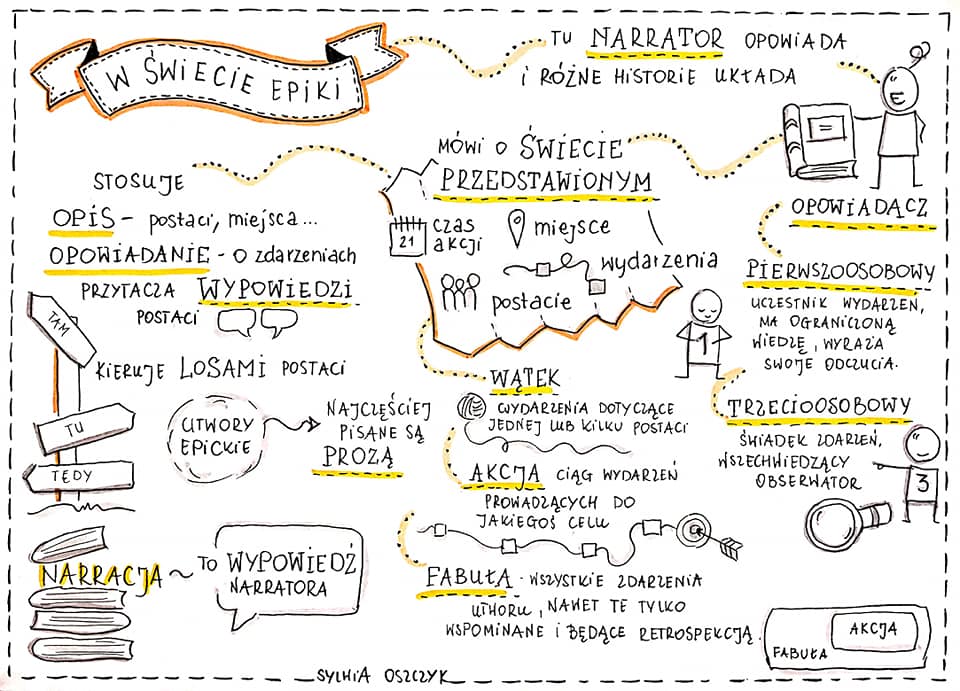 W ŚWIECIE EPIKI
TU NARRATOR OPOWIADA
I RÓŻNE HISTORIE UKŁADA
MÓWI O ŚWIECIE
PRZEDSTAWIONYM
21
czas
akcji
miejsce
wydarzenia
postacie
STOSUJE
OPIS – postaci, miejsca...
OPOWIADANIE - o zdarzeniach
PRZYTACZA WYPOWIEDZI
POSTACI
KIERUJE LOSAMI POSTACI
TAM
TU
TEDY
UTWORY
EPICKIE
NAJCZĘŚCIEJ
PISANE SĄ
PROZĄ
NARRACJA ~ TO WYPOWIEDŹ
NARRATORA
OPOWIADACZ
PIERWSZOOSOBOWY
UCZESTNIK WYDARZEŃ,
MA OGRANICZONĄ
WIEDZĘ, WYRAŻA
SWOJE ODCZUCIA.
1
TRZECIOOSOBOWY
ŚWIADEK ZDARZEŃ,
WSZECHWIEDZĄCY
OBSERWATOR
3
WĄTEK
WYDARZENIA DOTYCZĄCE
JEDNEJ LUB KILKU POSTACI
AKCJA CIĄG WYDARZEŃ
PROWADZĄCYCH DO
JAKIEGOŚ CELU
FABUŁA - WSZYSTKIE ZDARZENIA
UTWORU, NAWET TE TYLKO
WSPOMINANE I BĘDĄCE RETROSPEKCJĄ.
AKCJA
FABUŁA
SYLWIA OSZCZYK